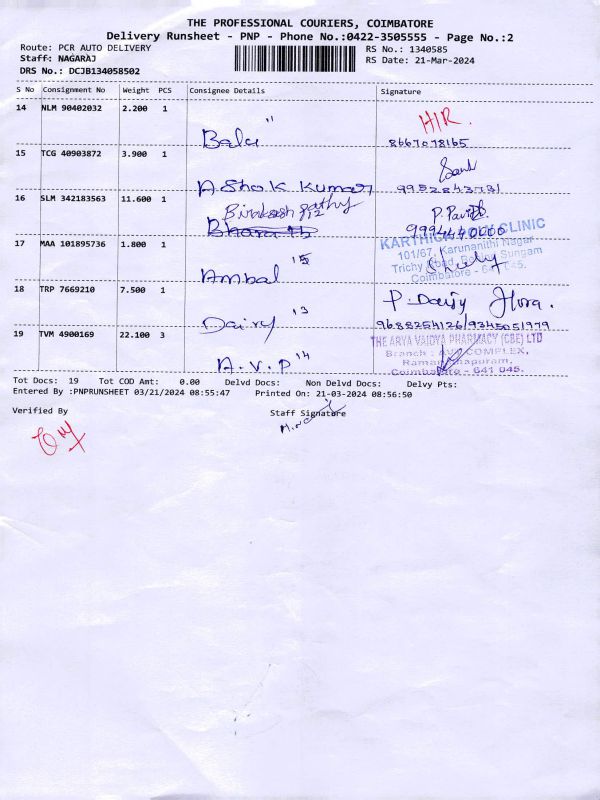 THE PROFESSIONAL COURIERS, COIMBATORE
Delivery Runsheet - PNP - Phone No.:0422-3505555 - Page No.:2
Route: PCR AUTO DELIVERY
RS No.: 1340585
Staff: NAGARAJ
RS Date: 21-Mar-2024
DRS No.: DCJB134058502
S No Consignment No Weight PCS Consignee Details Signature
14 NLM 90402032 2.200 1
Bala
8667078165
15 TCG 40903872 3.900 1
Ashok Kumar
16 SLM 342183563 11.600 1
P.
KARTHICK CLINIC
17 MAA 101895736 1.800 1
101/67, Karunanithi Nagar
Trichy Road, Sungam
Coimbatore - 45.
Ambal 15
18 TRP 7669210 7.500 1
P. Daisy Flora.
Dairy 13
9688254126/9345051979
19 TVM 4900169 22.100 3
THE ARYA VAIDYA PHARMACY (CBE) LTD
Branch: COMPLEX,
A.V.P 14
Coimbatore - 641 045.
Tot Docs: 19 Tot COD Amt: 0.00 Delvd Docs: Non Delvd Docs: Delvy Pts:
Entered By :PNPRUNSHEET 03/21/2024 08:55:47 Printed On: 21-03-2024 08:56:50
Verified By Staff Signatore